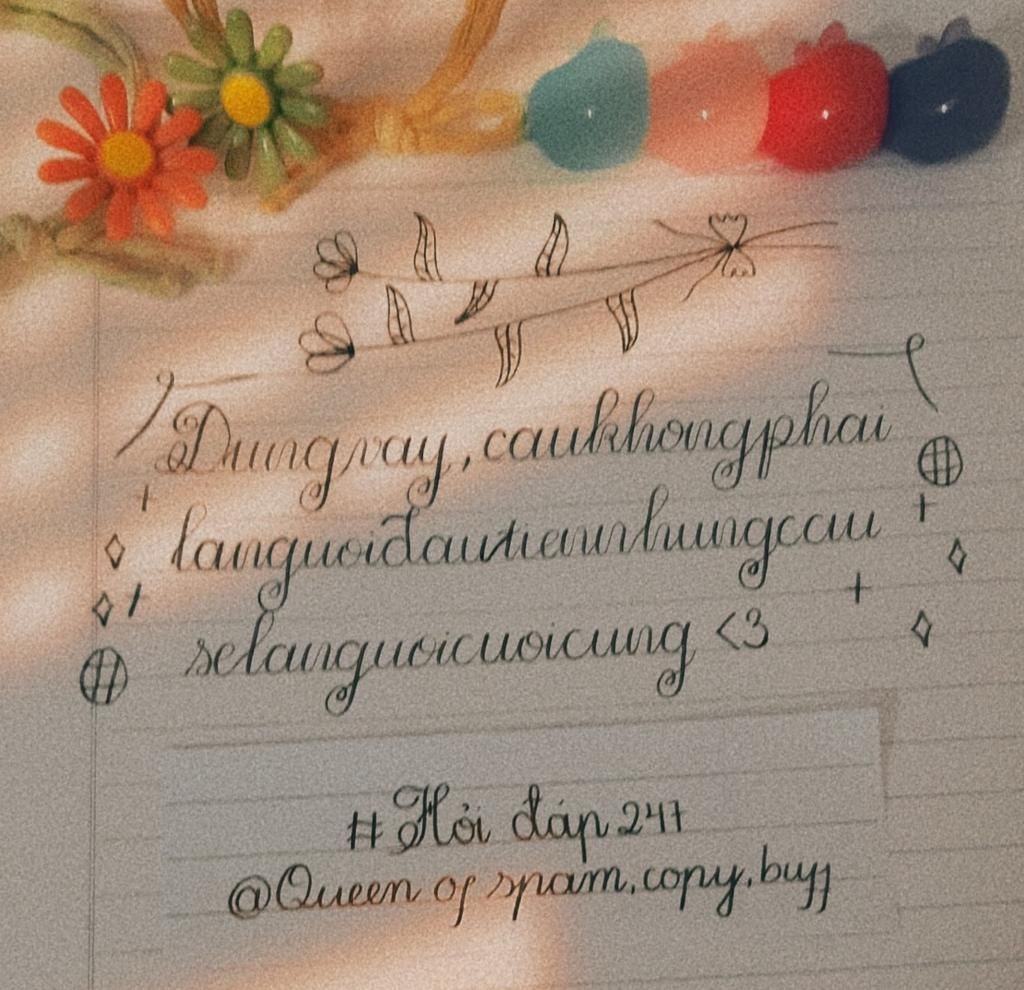 Dungvay, caukhongphai
languoidautiennhungcau
selanguoicuoicung <3
# Hỏi đáp 247
@Queen of spam.copy.buff